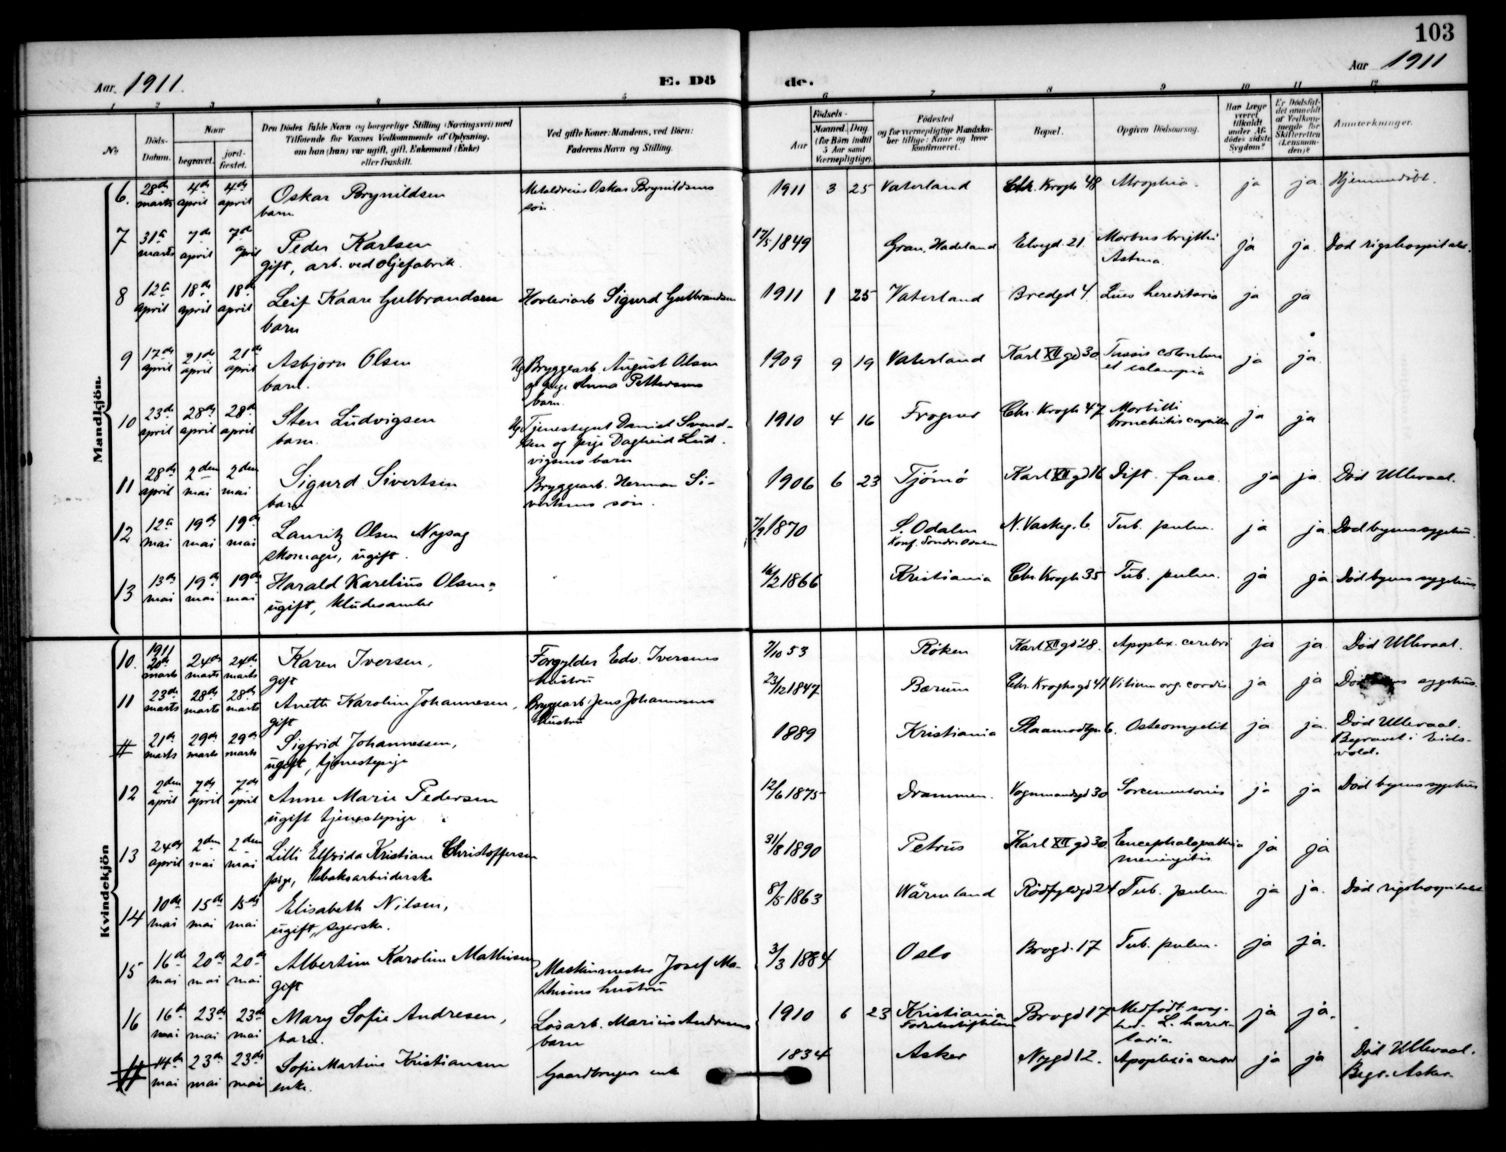 103
Aar 1911. E. Dö de. Aar 1911
1 2 3 4 5 6 7 8 9 10 11 12
No. Döds-Datum. Naar begravet. jord-fæstet. Den Dödes fulde Navn og borgerlige Stilling (Næringsvei) med Tilföiende for Voxnes Vedkommende af Oplysning, om han (hun) var ugift, gift, Enkemand (Enke) eller fraskilt. Ved gifte Koner: Mandens, ved Börn: Faderens Navn og Stilling. Födsels- Aar Maaned Dag. (for Börn indtil 5 Aar samt Værnepligtige). Födested og for værnepligtige Mandskaber tillige: Naar og hvor konfirmeret. Bopæl. Opgiven Dödsaarsag. Har Læge været tilkaldt under Afdödes sidste Sygdom? Er Dödsfaldet anmeldt af Vedkommende for Skifteretten (Lensmanden)? Anmerkninger.
Mandkjön.
6. 28de marts 4de april 4de april Oskar Brynildsen barn Metaldreier Oskar Brynildsens sön 1911 3 25 Vaterland Chr. Kroghs 48 Atrophia. ja ja. Hjemmedöbt.
7 31te marts 7de april 7de april Peder Karlsen gift, arb. ved oljefabrik. 17/5 1849 Gran, Hadeland Elvegd 21. Morbus brigthii Astma. ja ja. Död rigshospitalet.
8 12te april 18de april 18de april Leif Kaare Gulbrandsen barn Hövleriarb Sigurd Gulbrandsen 1911 1 25 Vaterland Bredgd 4. Lues hereditaria ja ja
9 17de april 21de april 21de april Asbjörn Olsen barn. Ug Bryggearb. August Olsen og pige Anna Pettersens barn. 1909 9 19 Vaterland Karl XII gd 30 Tussis et eclampsia ja ja.
10 23de april 28de april 28de april Sten Ludvigsen barn. Ug Tjenestegut Daniel Svendsen og pige Dagheid Ludvigsens barn 1910 4 16 Frogner Chr. Kroghs 47 Morbilli bronchitis capilla ja ja
11 28de april 2den mai 2den mai Sigurd Sivertsen barn Bryggearb. Herman Sivertsens sön. 1906 6 23 Tjömö Karl XII gd 16 Dift. fauc. ja ja. Död Ullevaal.
12 12te mai 19de mai 19de mai Lauritz Olsen Nysag skomager, ugift. 7/9 1870 S. Odalen Konf. Söndre Odalen N. Vaskeg. 6 Tub. pulm. ja ja. Död byens sygehus.
13 13de mai 19de mai 19de mai Harald Karelius Olsen ugift, kludesamler 16/2 1866 Kristiania Chr. Kroghs 35 Tub. pulm. ja ja Död byens sygehus
Kvindekjön
10. 1911 20de marts 24de marts 24de marts Karen Iversen, gift Forgylder Edv. Iversens hustru 7/10 53 Röken Karl XII gd 28. Apoplex. cerebri ja ja Död Ullevaal.
11 23de marts 28de marts 28de marts Anette Karoline Johannesen, gift Bryggearb. Jens Johannesens hustru 23/12 1847 Bærum Chr. Kroghsgd 41 Vitium org. cordis ja ja Död sygehus.
# 21de marts 29de marts 29de marts Sigfrid Johannessen, ugift, tjenestepige 1889 Kristiania 6. Osteomyelit ja ja. Död Ullevaal. Begravet i Eidsvold.
12 2den april 7de april 7de april Anne Marie Pedersen ugift tjenestepige 12/6 1875 Drammen. Vognmandsgd 30 ja ja Död byens sygehus
13 24de april 2den mai 2den mai Lilli Elfrida Kristiane Christoffersen pige, tobaksarbeiderske 31/8 1890 Petrus Karl XII gd 30 Encephalopathia meningitis ja ja
14 10de mai 15de mai 15de mai Elisabeth Nilsen, ugift, syerske. 8/5 1863 Wärmland Rödfyldgd 24 Tub. pulm. ja ja. Död rigshospitalet
15 16de mai 20de mai 20de mai Albertine Karoline Mathisen gift Maskinmester Josef Mathisens hustru 3/3 1884 Oslo Brogd. 17 Tub. pulm. ja ja.
16 16de mai 23de mai 23de mai Mary Sofie Andresen, barn. Lösarb. Marius Andresens barn 1910 6 23 Kristiania Födselsstiftelsen Brogd 17 Medfödt ja ja.
# 14de mai 23de mai 23de mai Sofie Martine Kristiansen enke. Gaardbruger enke 1834 Asker Nygd 12. Apoplexia cerebri ja ja Död Ullevaal. Begr. Asker.